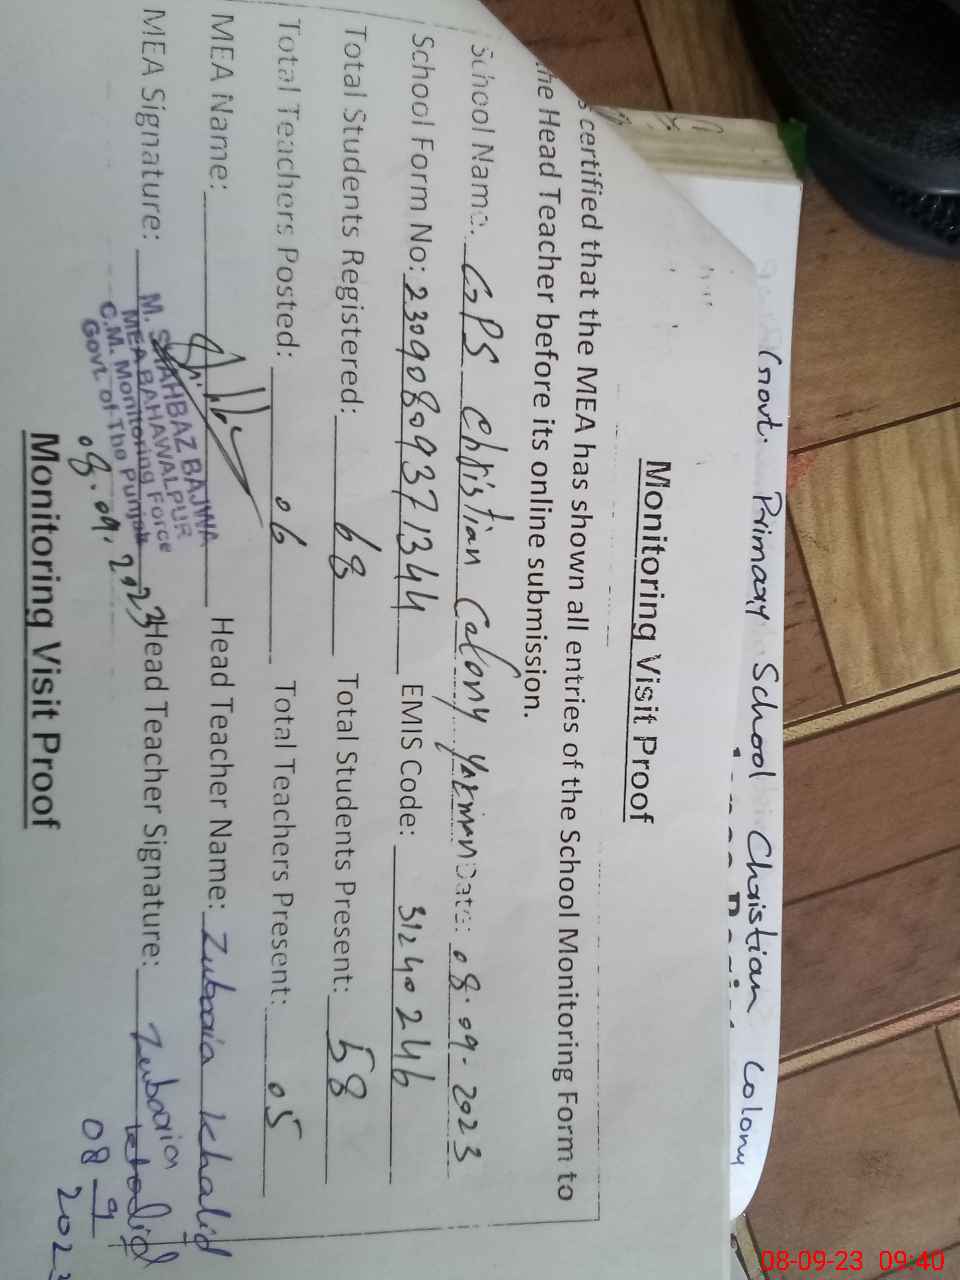 Govt. Primary School Christian Colony
Monitoring Visit Proof
certified that the MEA has shown all entries of the School Monitoring Form to
the Head Teacher before its online submission.
School Name: GPS Christian Colony Yazman Date: 08.09.2023
School Form No: 23090809371344 EMIS Code: 31240246
Total Students Registered: 68 Total Students Present: 58
Total Teachers Posted: 06 Total Teachers Present: 05
MEA Name: Head Teacher Name: Zubaria Khalid
MEA Signature: Head Teacher Signature: Zubaria Khalid
M. SHAHBAZ BAJWA
MEA BAHAWALPUR
C.M. Monitoring Force
Govt. of The Punjab
08.09.2023
08 9 2023
Monitoring Visit Proof
08-09-23 09:40